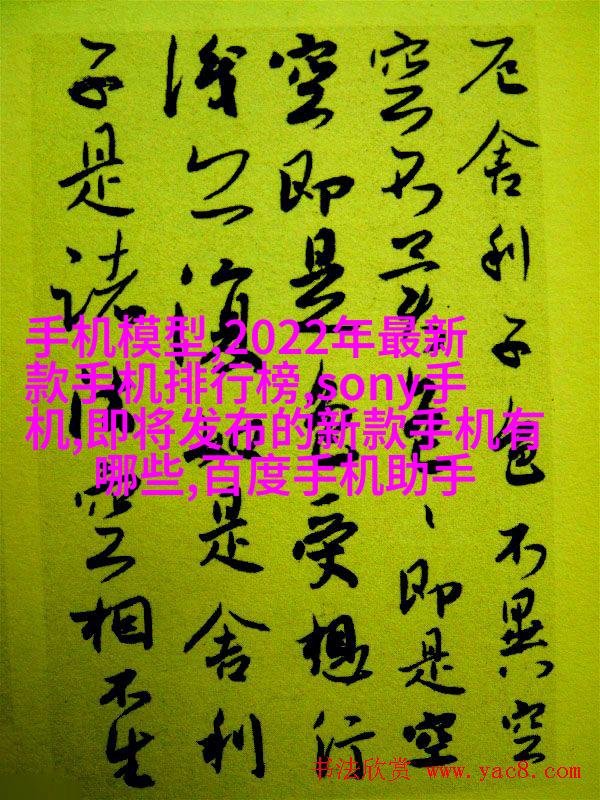 厄舍利子色不異空
空不異色色即是空
空即是色受想行
識亦復如是舍利
子是諸法空相不生
手机模型,2022年最新
款手机排行榜,sony手
机,即将发布的新款手机有
哪些,百度手机助手
书法欣赏 www.yac8.com